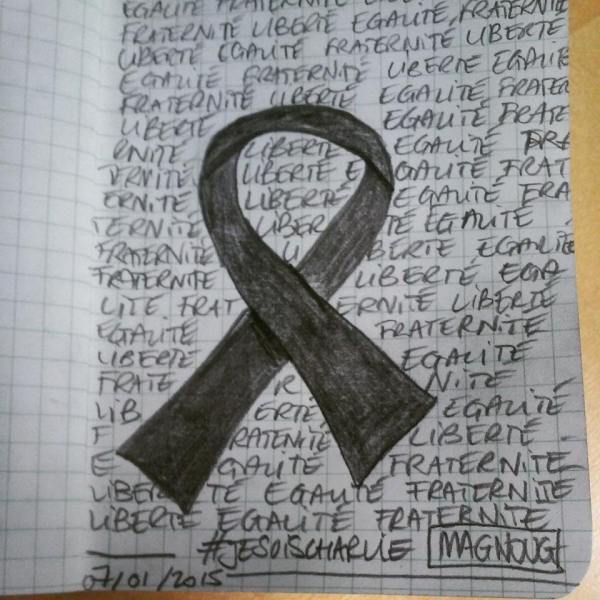 EGALITÉ FRATERNITÉ
FRATERNITÉ LIBERTÉ EGALITÉ, FRATERNITÉ
LIBERTÉ EGALITÉ FRATERNITÉ LIBERTÉ
EGALITÉ FRATERNITÉ LIBERTE EGALITÉ
FRATERNITÉ LIBERTÉ EGALITÉ FRATER
LIBERTÉ EGALITÉ FRATE
RNITE LIBERTÉ EGALITÉ FRA
LIBERTÉ E GALITÉ FRAT
ERNITÉ LIBERTÉ EGALITÉ FRA
TERNITÉ LIBER TÉ EGALITÉ
FRATERNITÉ LI BERTÉ EGALITÉ
FRATERNITÉ LIBERTÉ EGA
LITE FRAT ERNITÉ LIBERTÉ
EGALITÉ FRATERNITÉ
LIBERTE EGALITÉ
FRATE R NITÉ
LIB ERTÉ EGALITÉ
F RATENITÉ LIBERTÉ -
E GALITÉ FRATERNITE
LIBER TÉ EGALITÉ FRATERNITÉ
LIBERTÉ EGALITÉ FRATERNITÉ
#JESUISCHARLIE MAGNOUG
07/01/2015